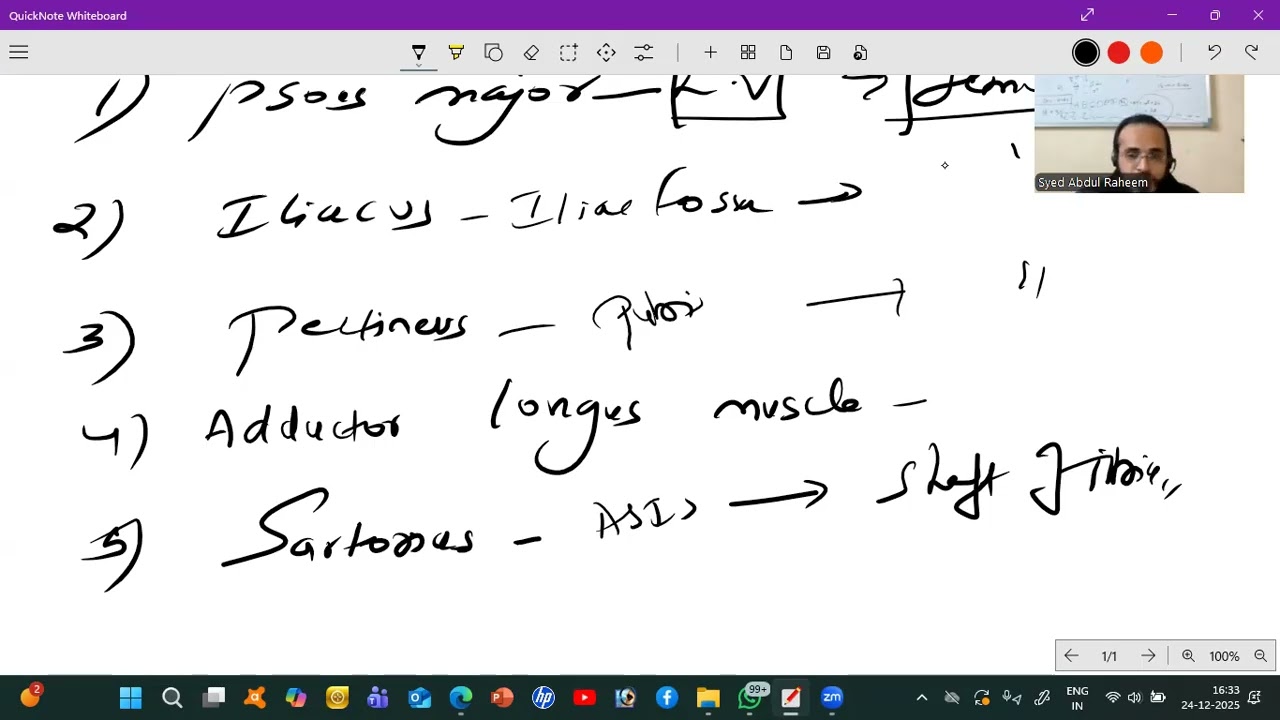 QuickNote Whiteboard
1) Psoas major — L.V →
Syed Abdul Raheem
2) Iliacus - Iliac fossa →
3) Pectineus — Pubis → "
4) Adductor longus muscle -
5) Sartorius - ASIS → shaft of Tibia,,
1/1 100%
2
99+
zm
ENG
IN
16:33
24-12-2025